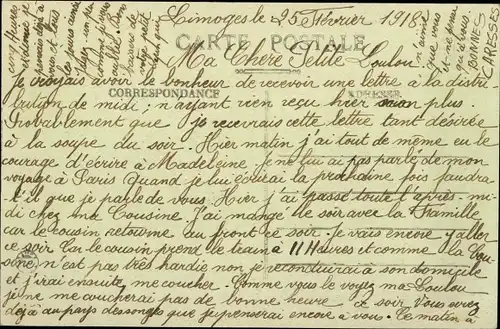 Limoges le 25 Février 1918
CARTE POSTALE
Ma Chère Petite Loulou
Je croyais avoir le bonheur de recevoir une lettre à la distri-
CORRESPONDANCE
ADRESSE
bution de midi ; n'ayant rien reçu hier non plus.
Probablement que je recevrais cette lettre tant désirée
à la soupe du soir. Hier matin j'ai tout de même eu le
courage d'écrire à Madeleine je ne lui ai pas parlé de mon
voyage à Paris Quand je lui écrirai la prochaine fois faudra
t'il que je parle de vous. Hier j'ai passé toute l'après-mi-
di chez une Cousine. J'ai mangé le soir avec la Famille
car le cousin retourne au front ce soir. Je vais encore y aller
ce soir. Car le cousin prend le train à 11 Heures et comme la Cou-
sine n'est pas très hardie non je reconduirai à son domicile
et j'irai ensuite me coucher. Comme vous le voyez ma Loulou
je ne me coucherai pas de bonne heure ce soir. Vous serez
déjà au pays des songes que je penserai encore à vous. Ce matin à
n'aime
que vous
et ne pense
qu'à vous.
BONNES
CARESS